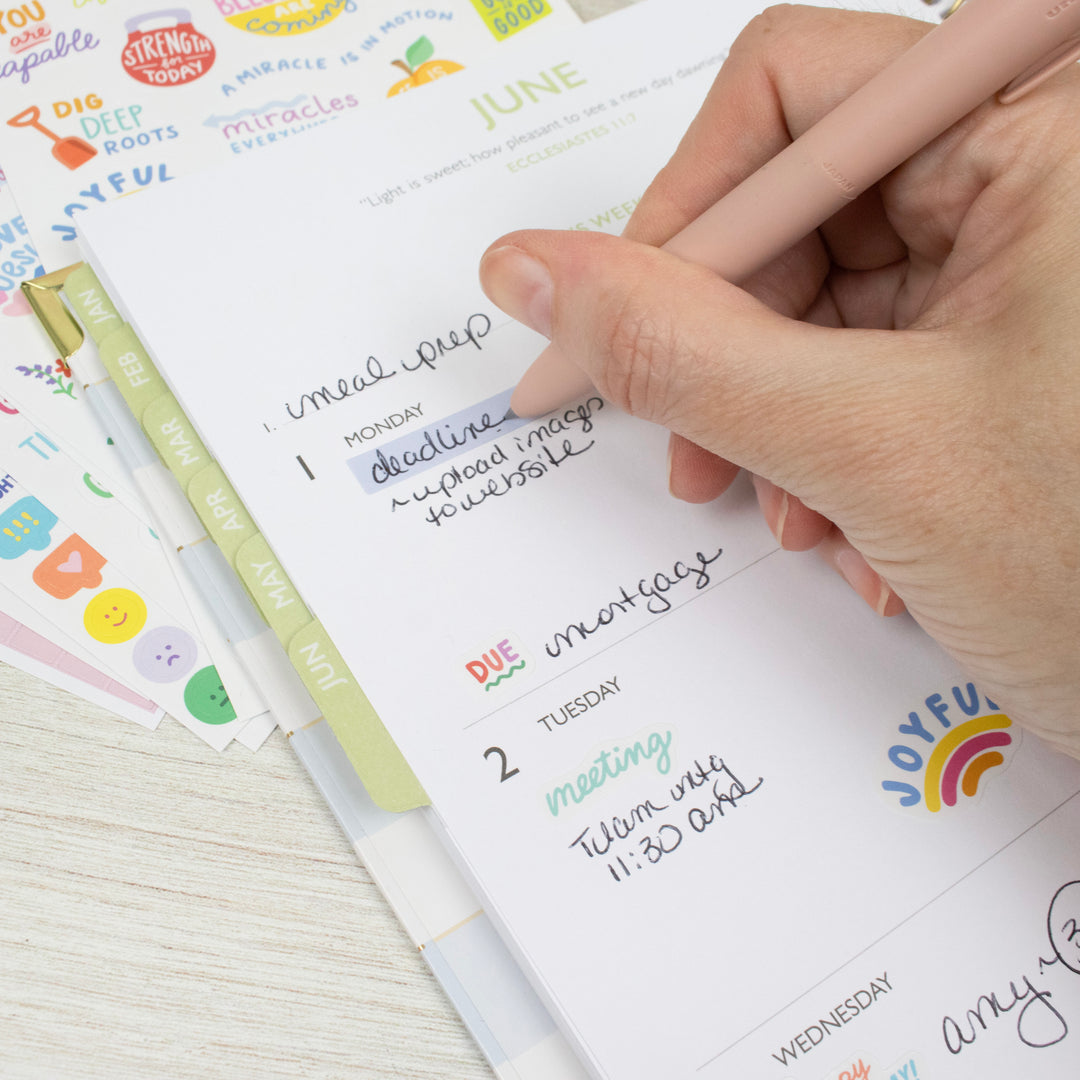 YOU
are
capable
STRENGTH
for
TODAY
ARE
Coming
GOOD
A MIRACLE IS IN MOTION
DIG
DEEP
ROOTS
miracles
JOYFUL
JUNE
"Light is sweet; how pleasant to see a new day dawning
ECCLESIASTES 11:7
WEEK
1. meal prep
MONDAY
1
deadline
~ upload images
to website
DUE mortgage
TUESDAY
2
meeting
Team mtg
11:30
JOYFUL
WEDNESDAY
amy ~ 3
JAN
FEB
MAR
APR
MAY
JUN